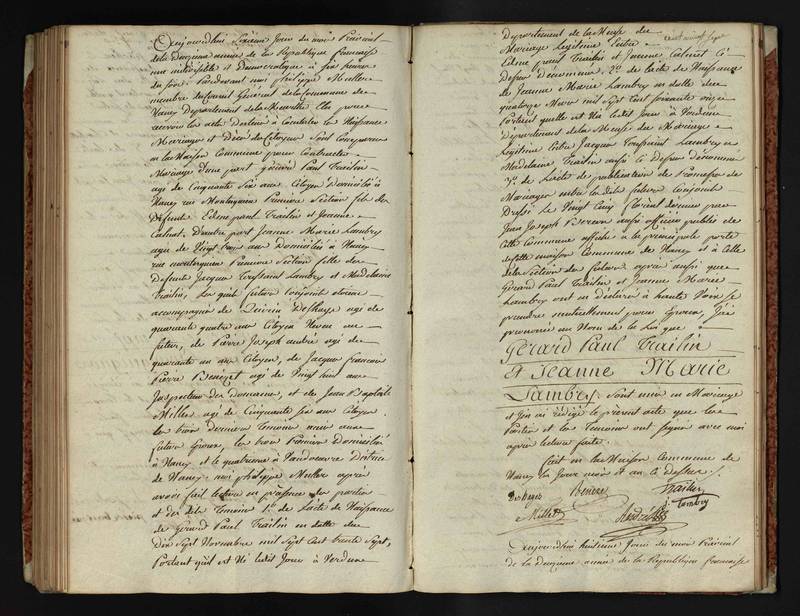 Aujourd'hui Sixieme Jour du mois Prairial
de la Deuxieme année de la République française
une indivisible et Démocratique à six heures
du soir. Pardevant moi philippe Muller
membre du Conseil Général de la Commune de
Nancy Département de la Meurthe Elu pour
recevoir les actes Destinés à Constater les Naissances
Mariages et Décès des Citoyens Sont Comparus
en la Maison Commune pour Contracter
Mariage d'une part gérard Paul Trailin
agé de Cinquante Six ans Citoyen Domicilié à
Nancy rue Montesquieu Premiere Section fils des
Défunts Edme paul Trailin et Jeanne
Calinet, D'autre part Jeanne Marie Lambry
agée de Vingt trois ans Domiciliée à Nancy
rue montesquieu Premiere Section fille des
Défunts Jacques Toussaint Lambry et Madelaine
Trailin, Les quels futurs Conjoints étoient
accompagnés de Quirin Desharge agé de
quarante quatre ans Citoyen Neveu au
futur, de Pierre Joseph andré agé de
quarante un ans Citoyen, de Jacques francois
Pierre Benezet agé de Vingt huit ans
Inspecteur des Domaines, et de Jean Baptiste
Millet agé de Cinquante six ans Citoyen
les trois Derniers Temoins amis aux
futurs Epoux les trois Premiers Domiciliés
à Nancy et le quatrieme à Vandoeuvre District
de Nancy. moi philippe Muller après
avoir fait lecture en présence des parties
et des dits Temoins 1° de l'acte de Naissance
de Gérard Paul Trailin en datte du
Dix Sept Novembre mil Sept Cent trente Sept,
Portant qu'il est Né ledit Jour à Verdun
Département de la Meuse du
Mariage Légitime Entre
Edme paul Trailin et Jeanne Calinet Ci
Dessus Denommés, 2° de l'acte de Naissance
de Jeanne Marie Lambry en datte du
quatorze Mars mil Sept Cent Soixante onze
Portant qu'elle est Née ledit Jour à Verdun
Département de la Meuse du Mariage
Légitime Entre Jacques Toussaint Lambry et
Madelaine Trailin aussi Ci Dessus Denommés
3° de l'acte de publication de Promesses de
Mariage entre les dits futurs Conjoints
Dressé le Vingt Cinq floréal dernier par
Jean Joseph aussi officier public de
Cette Commune affiché à la principale porte
de cette maison Commune de Nancy et à Celle
de la Section des futurs. après aussi que
Gerard Paul Trailin et Jeanne Marie
Lambry ont eu Déclaré à haute Voix se
prendre mutuellement pour Epoux, J'ai
prononcé au Nom de la Loi que
Gérard Paul Trailin
Et Jeanne Marie
Lambry, Sont unis en Mariage
et J'en ai rédigé le présent acte que les
Parties et les Temoins ont Signés avec moi
après lecture faite.
fait en la Maison Commune de
Nancy les Jours mois et an Ci dessus.
Benezet Trailin
Millet J. Lambry
Aujourd'hui huitieme Jour du mois Prairial
de la Deuxieme année de la République française